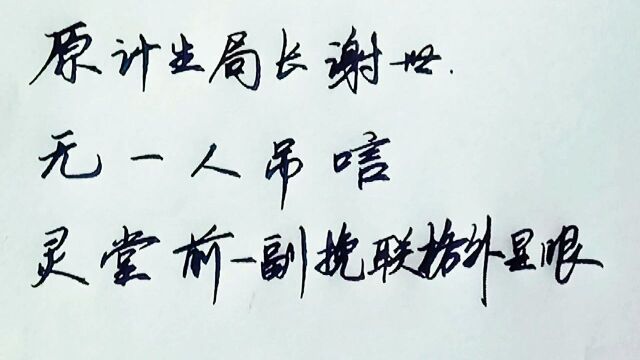 原计生局长谢世.
无一人吊唁
灵堂前一副挽联格外显眼